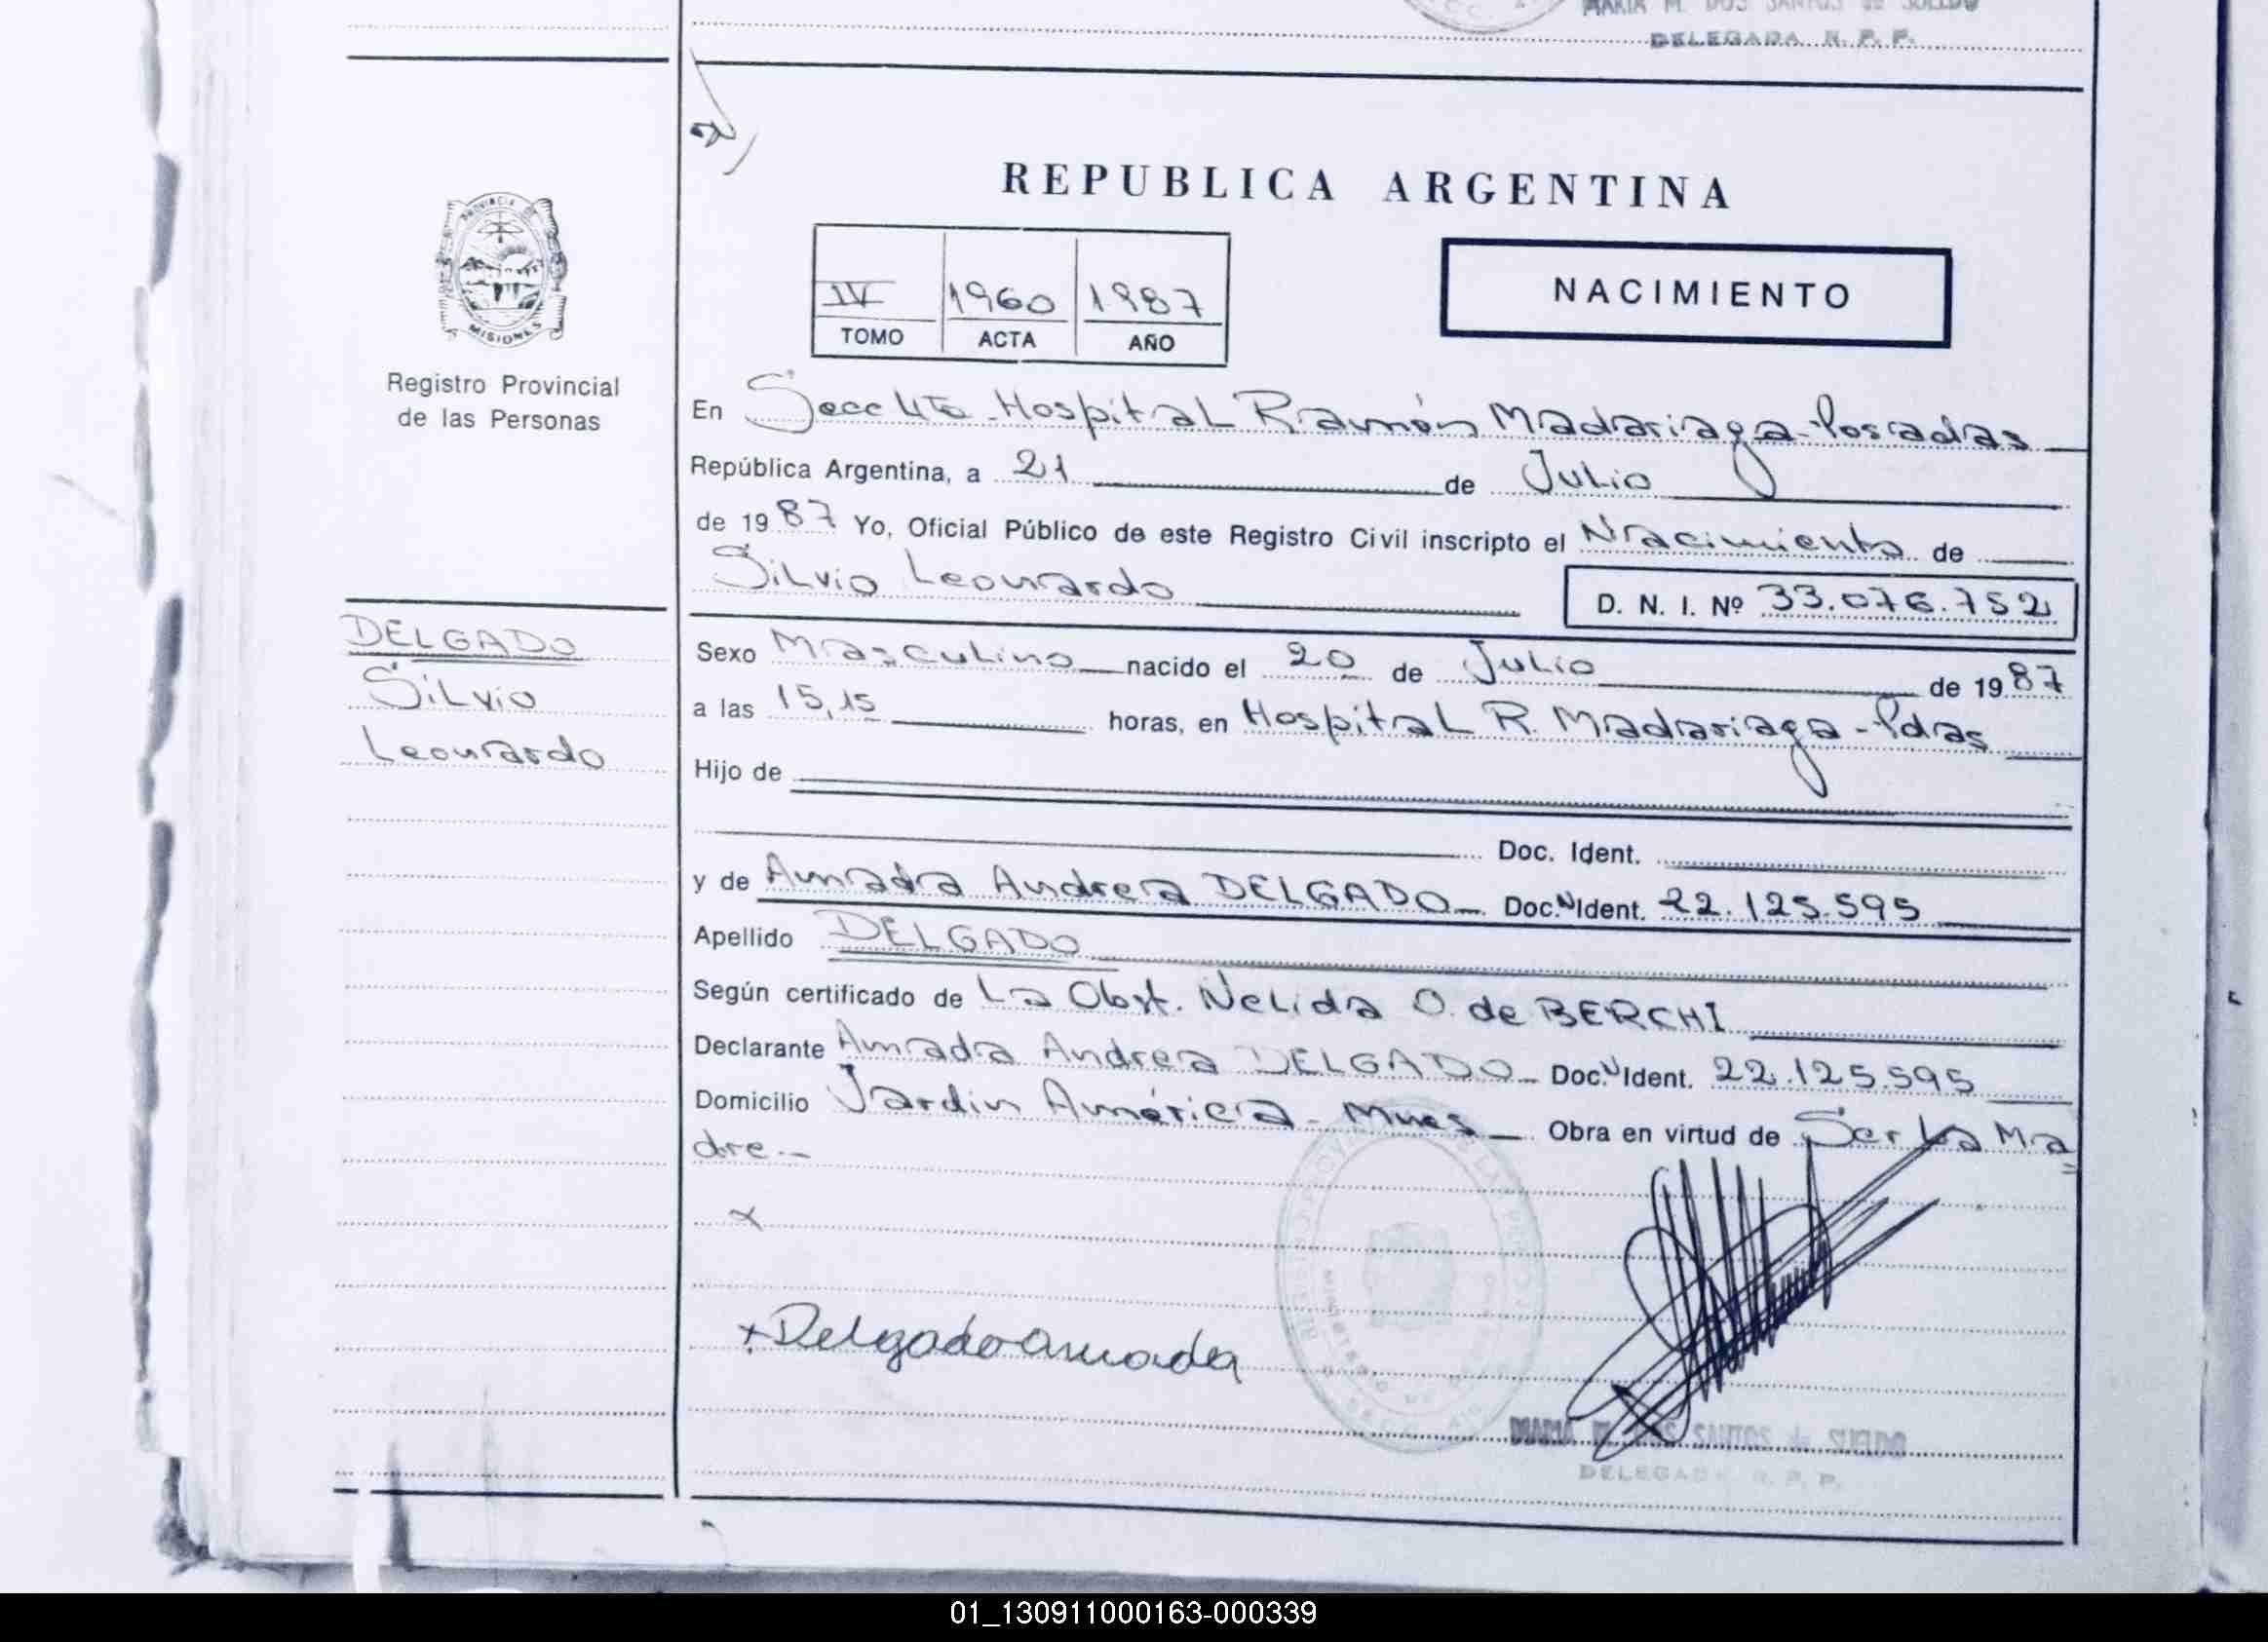 MARIA M. DOS SANTOS de SUELDO
DELEGADA R. P. P.
REPUBLICA ARGENTINA
PROVINCIA DE
MISIONES
IV 1960 1987
TOMO ACTA AÑO
NACIMIENTO
Registro Provincial
de las Personas
En Secc 4ta - Hospital Ramón Madariaga - Posadas
República Argentina, a 21 de Julio
de 1987 Yo, Oficial Público de este Registro Civil inscripto el Nacimiento de
Silvio Leonardo
D. N. I. Nº 33.076.752
DELGADO
Silvio
Leonardo
Sexo Masculino nacido el 20 de Julio de 1987
a las 15,15 horas, en Hospital R. Madariaga - Pdas
Hijo de
Doc. Ident.
y de Amada Andrea DELGADO Doc. N Ident. 22.125.595
Apellido DELGADO
Según certificado de La Obst. Nelida O. de BERCHI
Declarante Amada Andrea DELGADO Doc. N Ident. 22.125.595
Domicilio Jardin América - Mnes Obra en virtud de Ser La Ma
dre.-
x
+Delgado amada
MARIA M. DOS SANTOS de SUELDO
DELEGADA R. P. P.
01_130911000163-000339